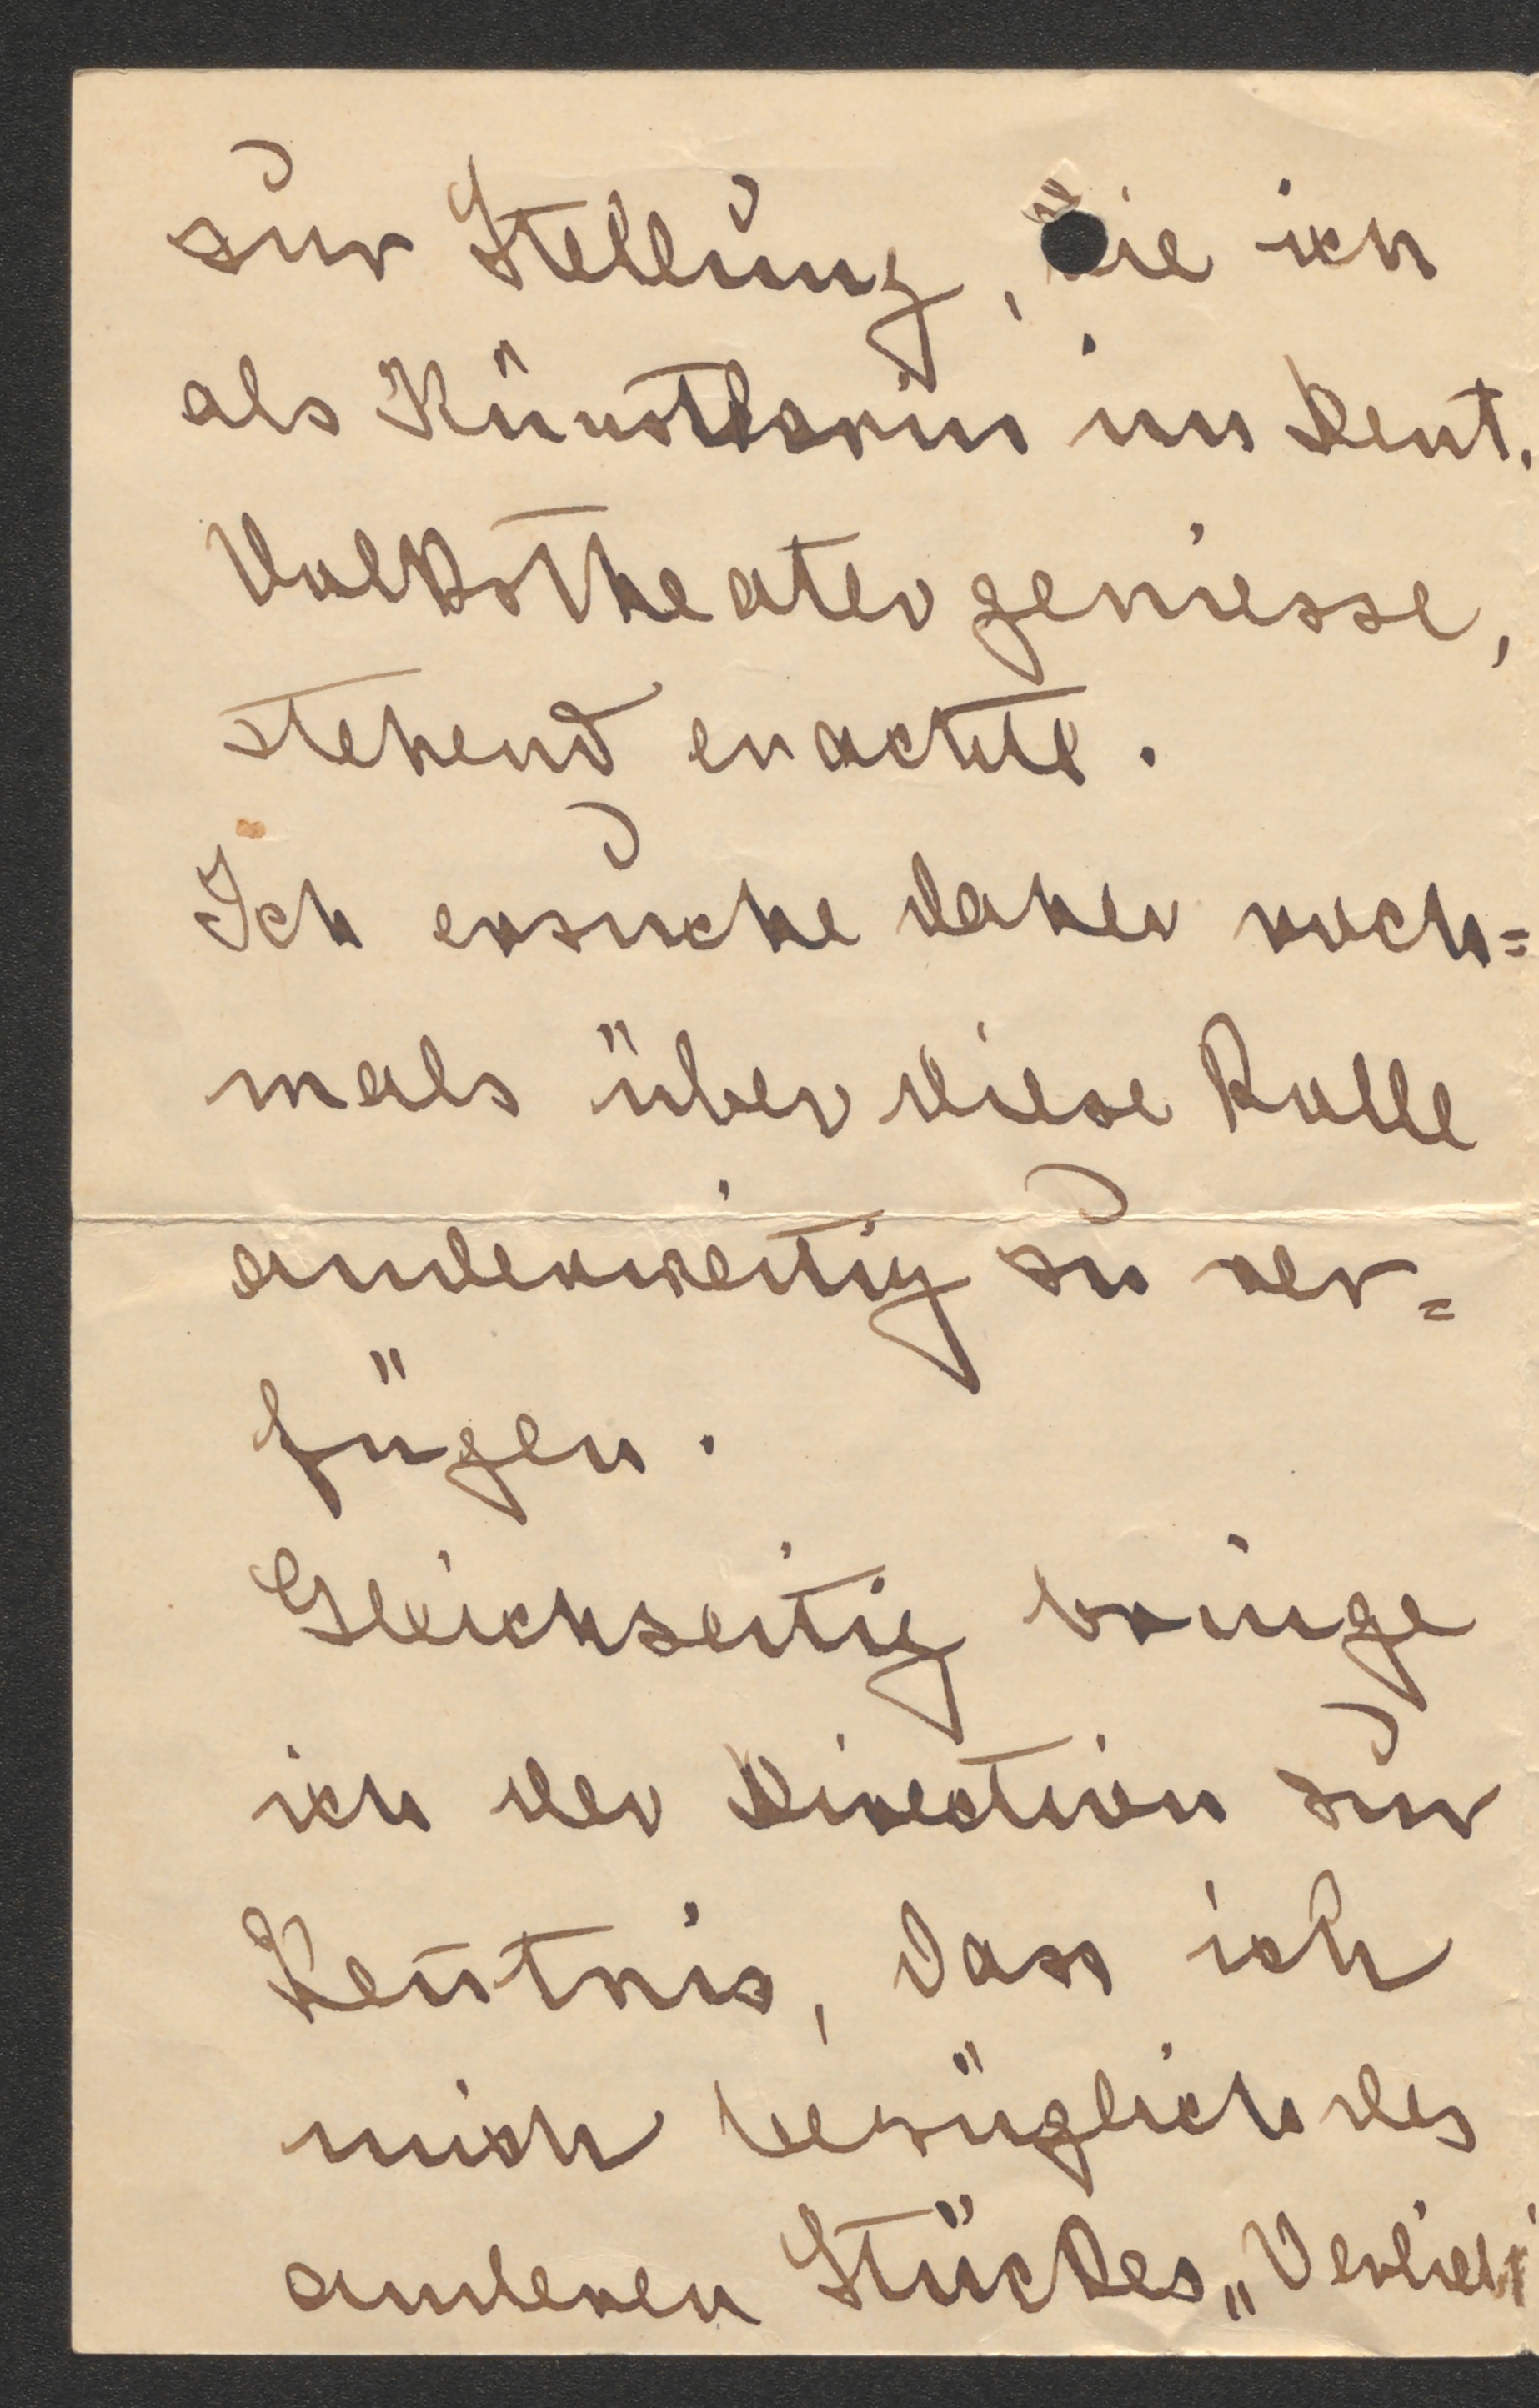 zur Stellung, die ich
als Künstlerin im Deut.
Volkstheater geniesse,
stehend erachte.
Ich ersuche daher noch=
mals über diese Rolle
anderweitig zu ver=
fügen.
Gleichzeitig bringe
ich der Direction zur
Kentnis, dass ich
mich bezüglich des
anderen Stückes „Verliebt